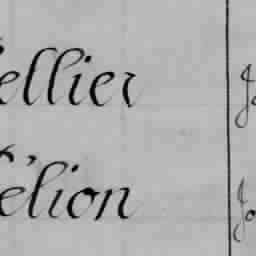 ellier
élion